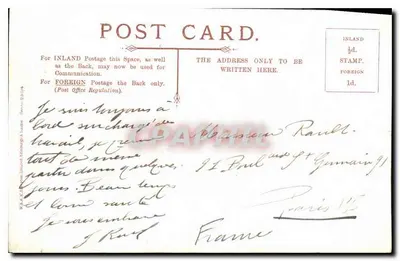 POST CARD.
For INLAND Postage this Space, as well
as the Back, may now be used for
Communication.
For FOREIGN Postage the Back only.
(Post Office Regulations).
THE ADDRESS ONLY TO BE
WRITTEN HERE.
INLAND
½d.
STAMP.
FOREIGN
1d.
Je suis toujours a
bord surchargé de
travail, je pense
tout de même
partir dans quelques
jours. Beau temps
et bonne santé
Je vous embrasse
Monsieur Rault
91 Boul St Germain 91
Paris
France